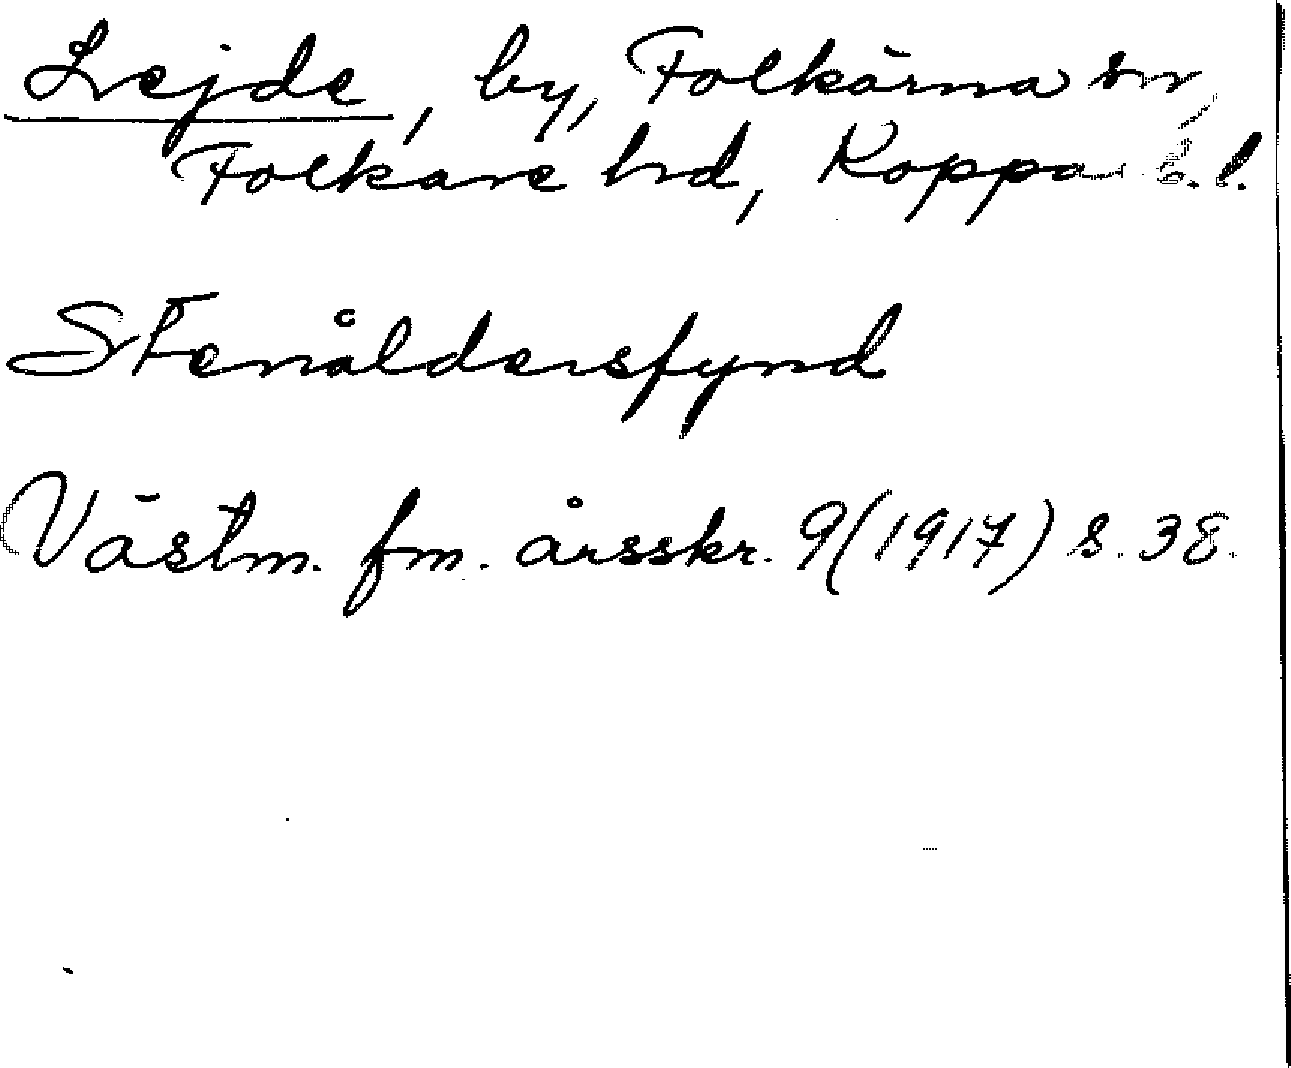 Lejde, by, Folkärna sn,
Folkare hrd, Kopparb. l.
Stenåldersfynd
Västm. fm. årsskr. 9 (1917) s. 38.